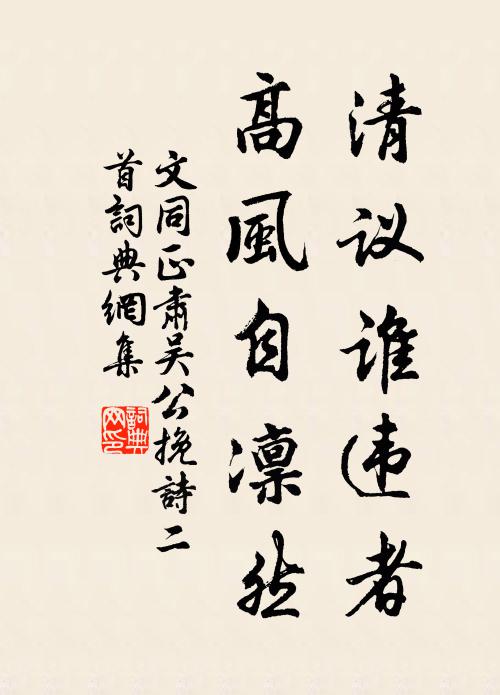 清议谁违者
高風自凛然
文同正肅吴公挽詩二
首詞典網集
詞典
网印